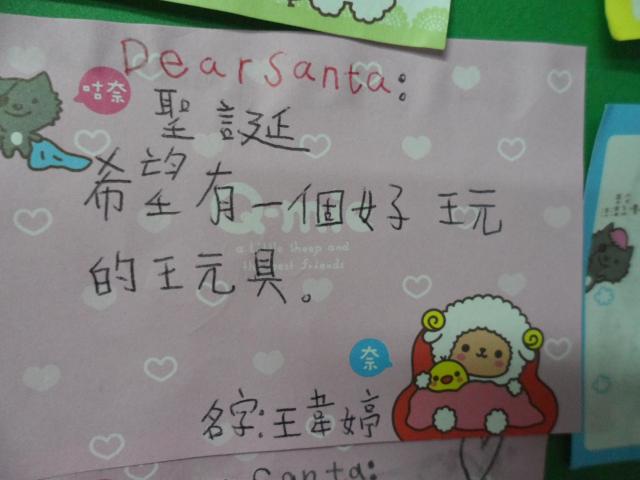 Dear Santa:
咕奈
聖誕
希望有一個好玩
的玩具。
a little sheep and
best friends
奈
名字:王韋婷
Santa: